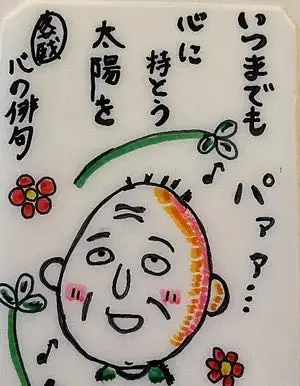 いつまでも
心に
持とう
太陽を
心の俳句
パァァ…